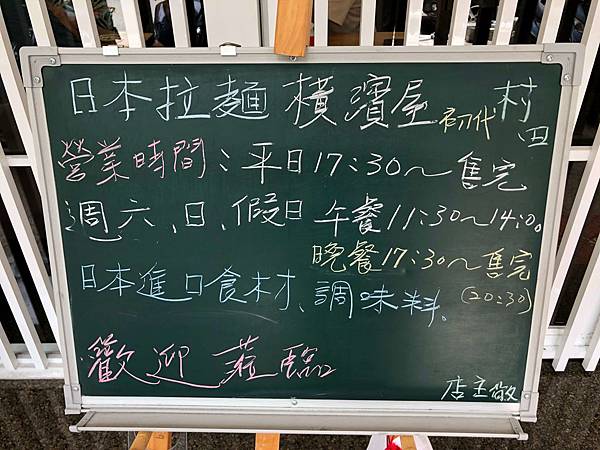 日本拉麵 橫濱屋 初代 村田
營業時間：平日17:30～售完
週六、日、假日 午餐11:30～14:00
晚餐17:30～售完
(20:30)
日本進口食材、調味料。
歡迎蒞臨
店主敬